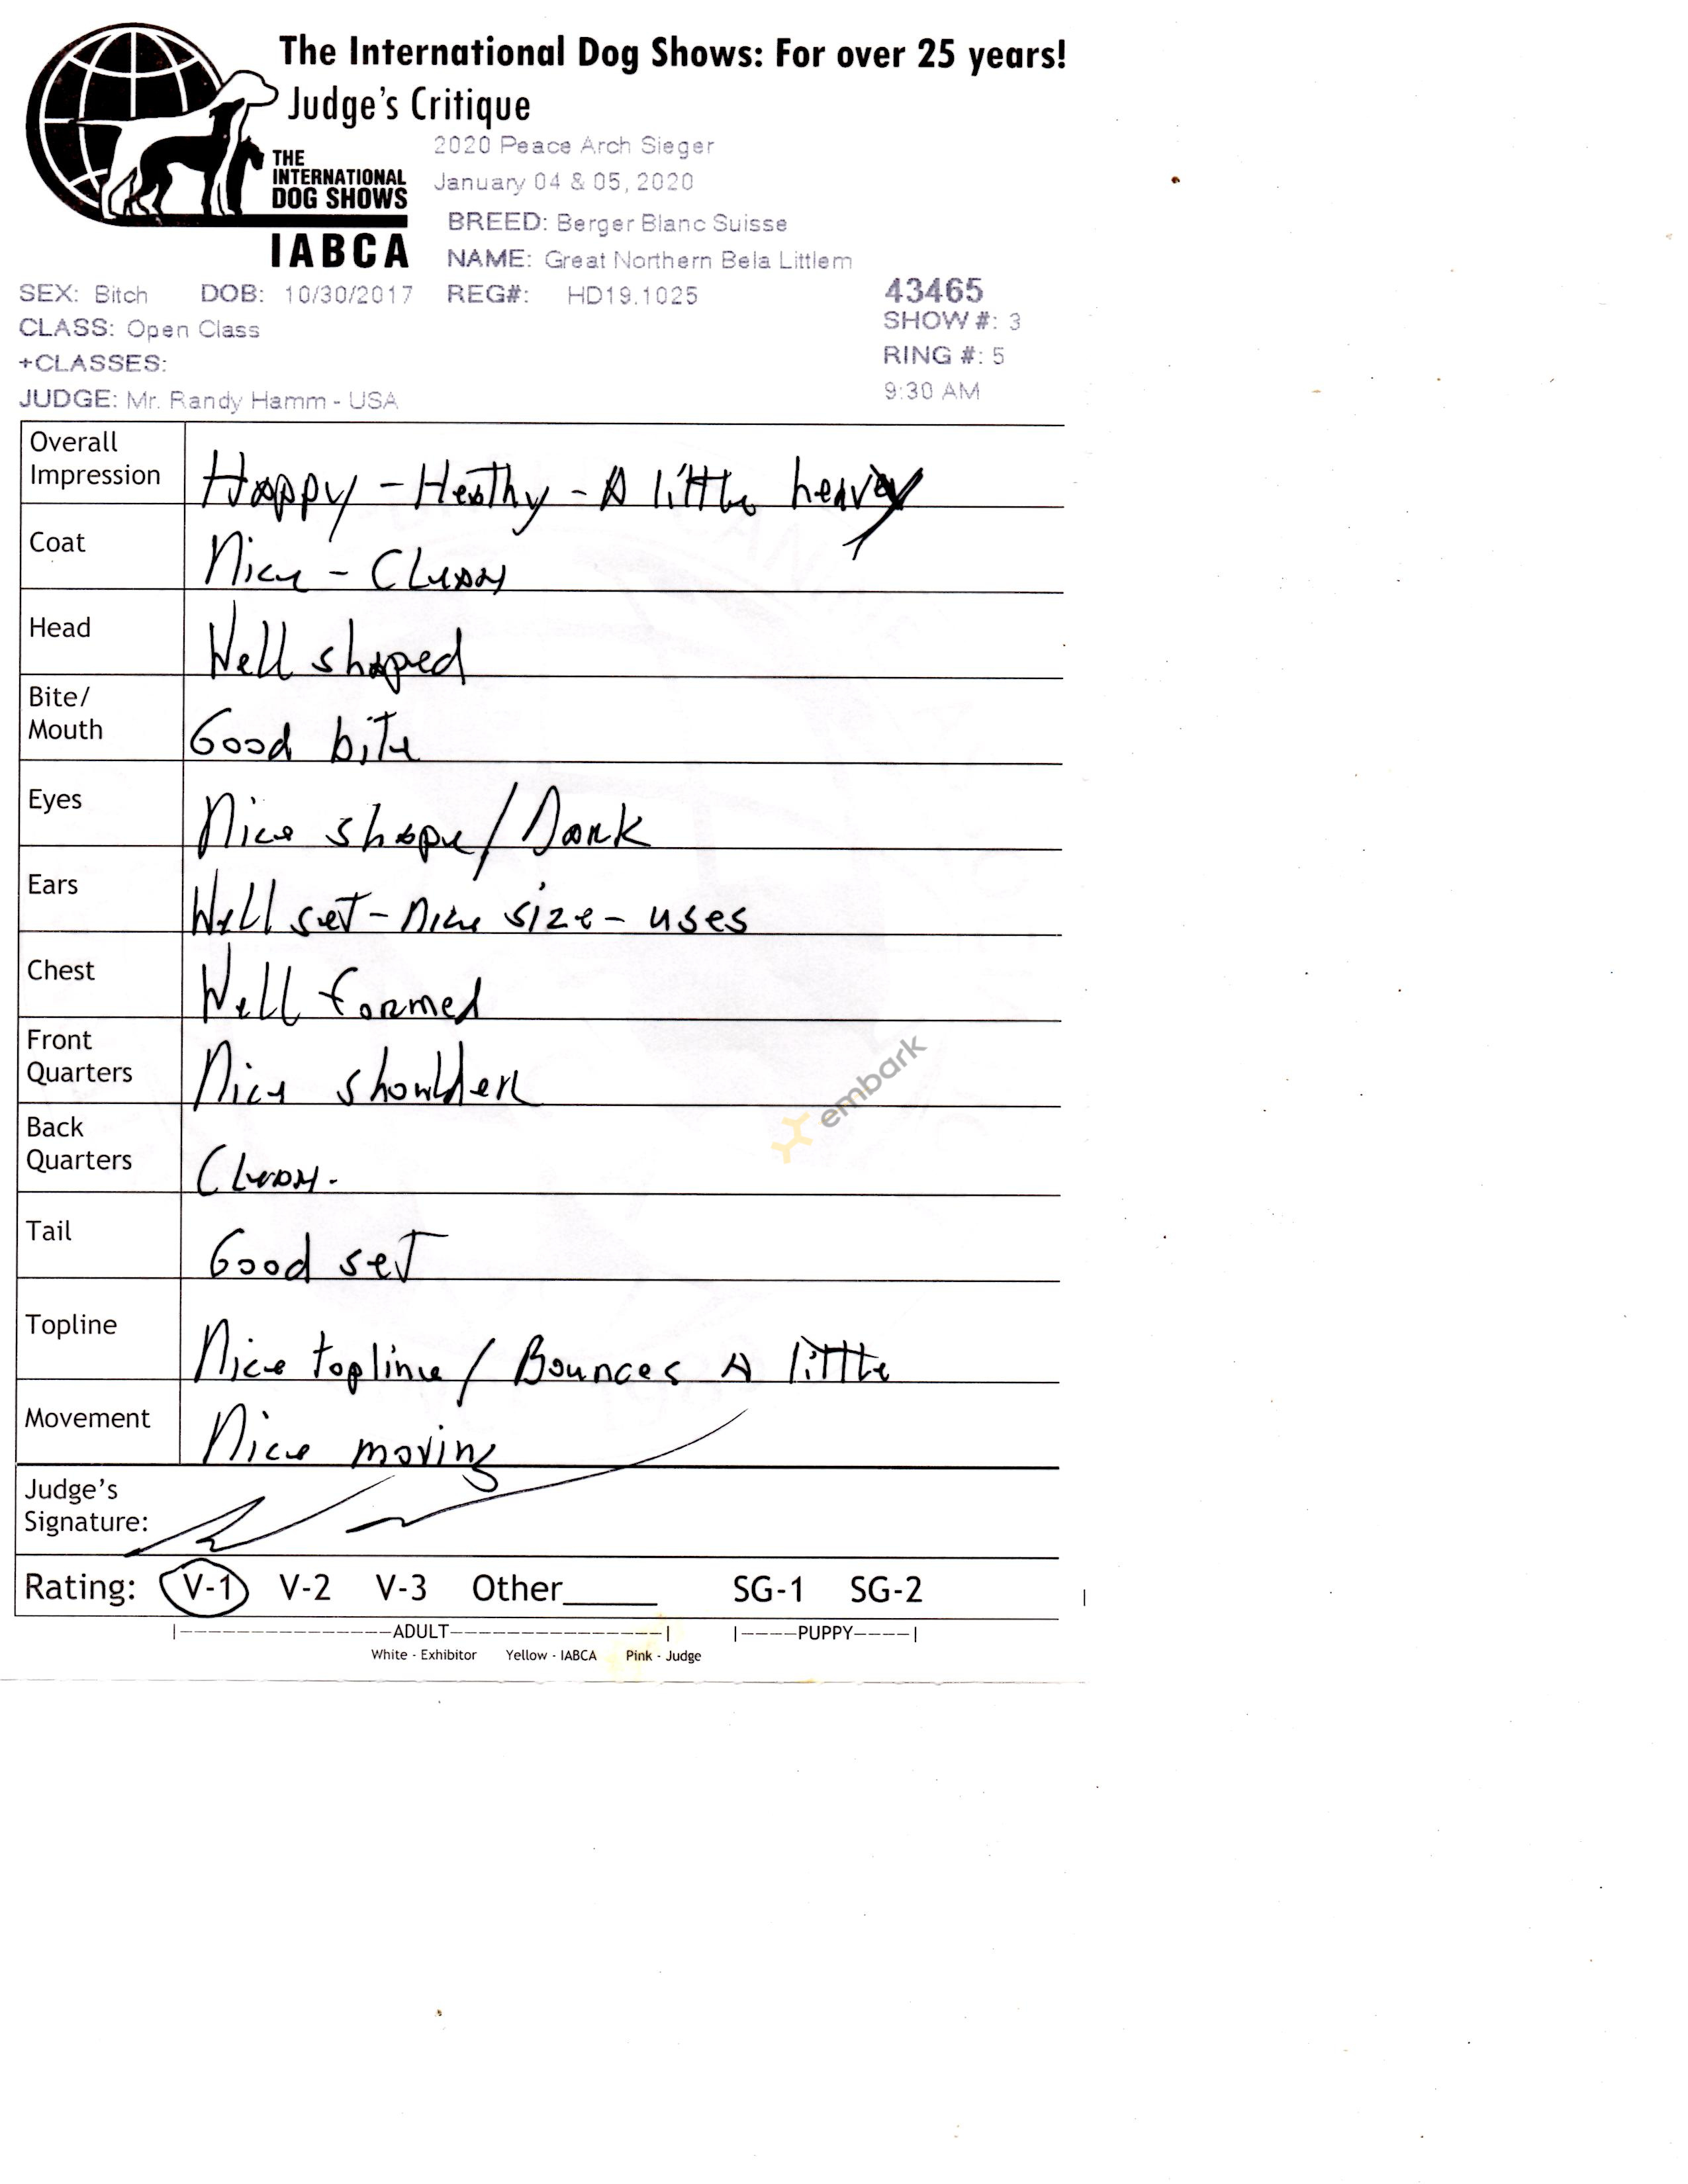 The International Dog Shows: For over 25 years!
Judge's Critique
THE
INTERNATIONAL
DOG SHOWS
IABCA
2020 Peace Arch Sieger
January 04 & 05, 2020
BREED: Berger Blanc Suisse
NAME: Great Northern Bela Littlem
SEX: Bitch DOB: 10/30/2017 REG#: HD19.1025 43465
CLASS: Open Class SHOW #: 3
+CLASSES: RING #: 5
JUDGE: Mr. Randy Hamm - USA 9:30 AM
Overall
Impression Happy - Healthy - A little heavy
Coat Nice - Clean
Head Well shaped
Bite/
Mouth Good bite
Eyes Nice shape / Dark
Ears Well set - nice size - uses
Chest Well formed
Front
Quarters Nice shoulder
Back
Quarters Clean.
Tail Good set
Topline Nice topline / Bounces A little
Movement Nice moving
Judge's
Signature:
Rating: V-1 V-2 V-3 Other_____ SG-1 SG-2
|----------------ADULT----------------| |----PUPPY----|
White - Exhibitor Yellow - IABCA Pink - Judge
embark